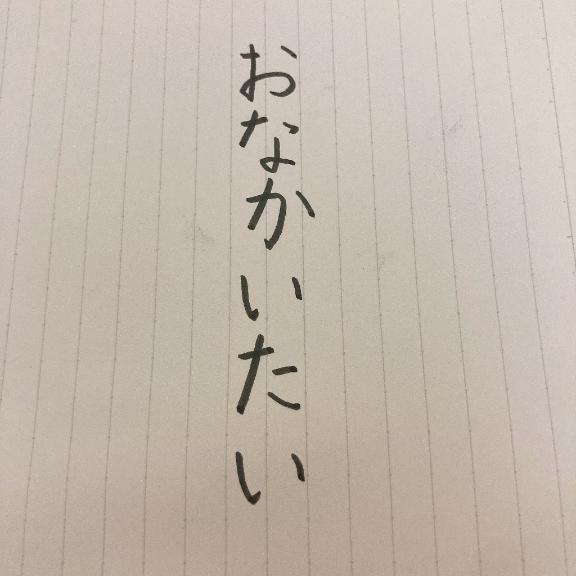 おなかいたい